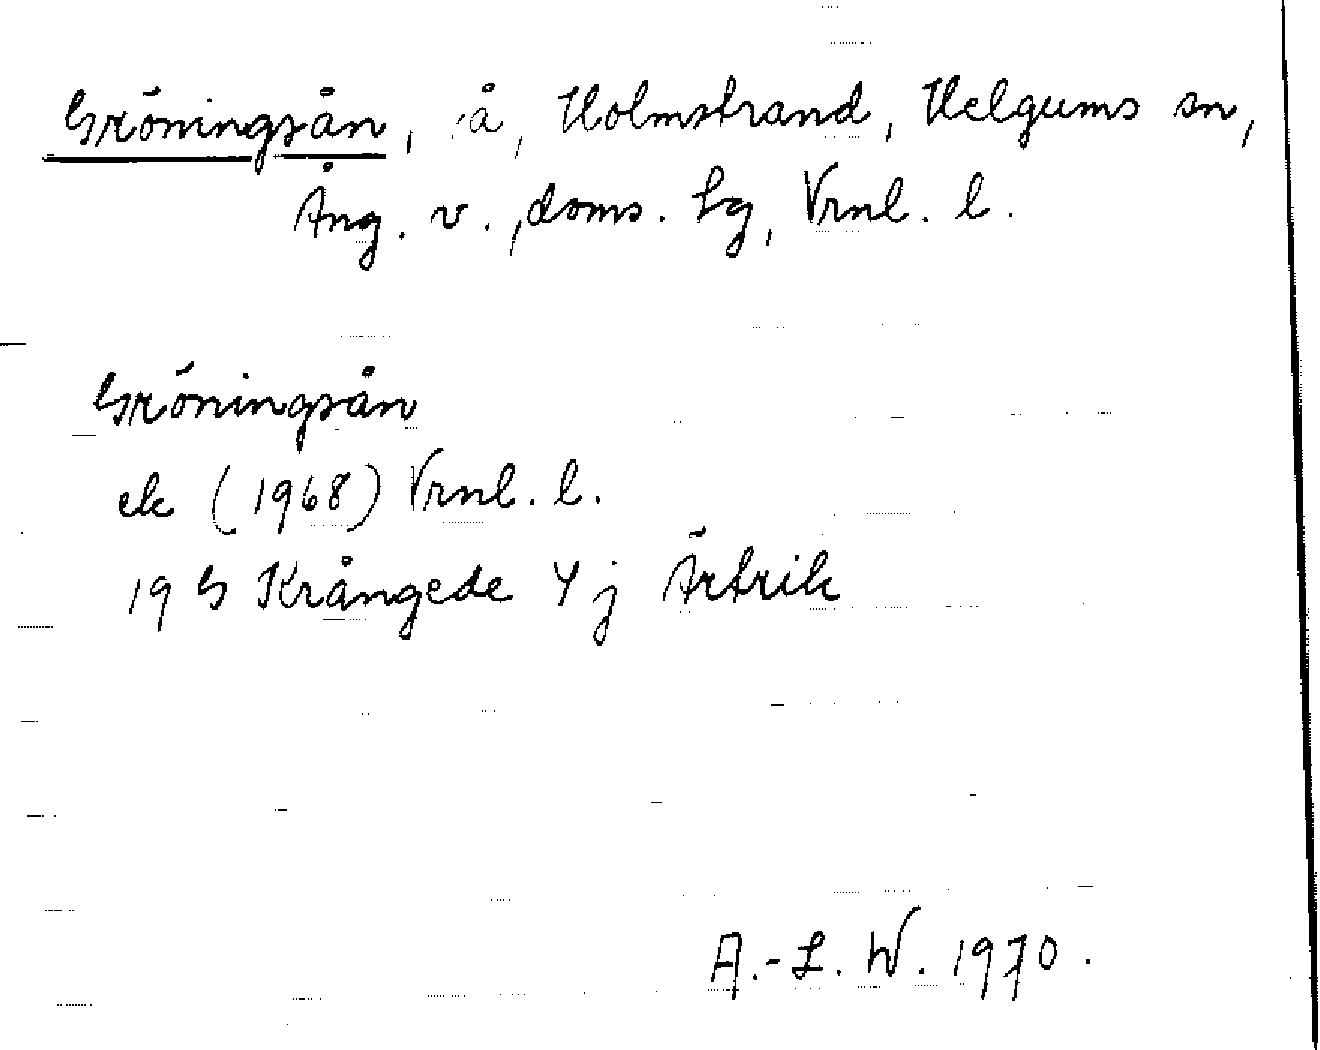 Gröningsån, å, Holmstrand, Helgums sn,
Ång. v. doms. lg, Vrnl. l.
Gröningsån
ek (1968) Vrnl. l.
19 G Krångede 4 j Ärtrik
A.-L. W. 1970.